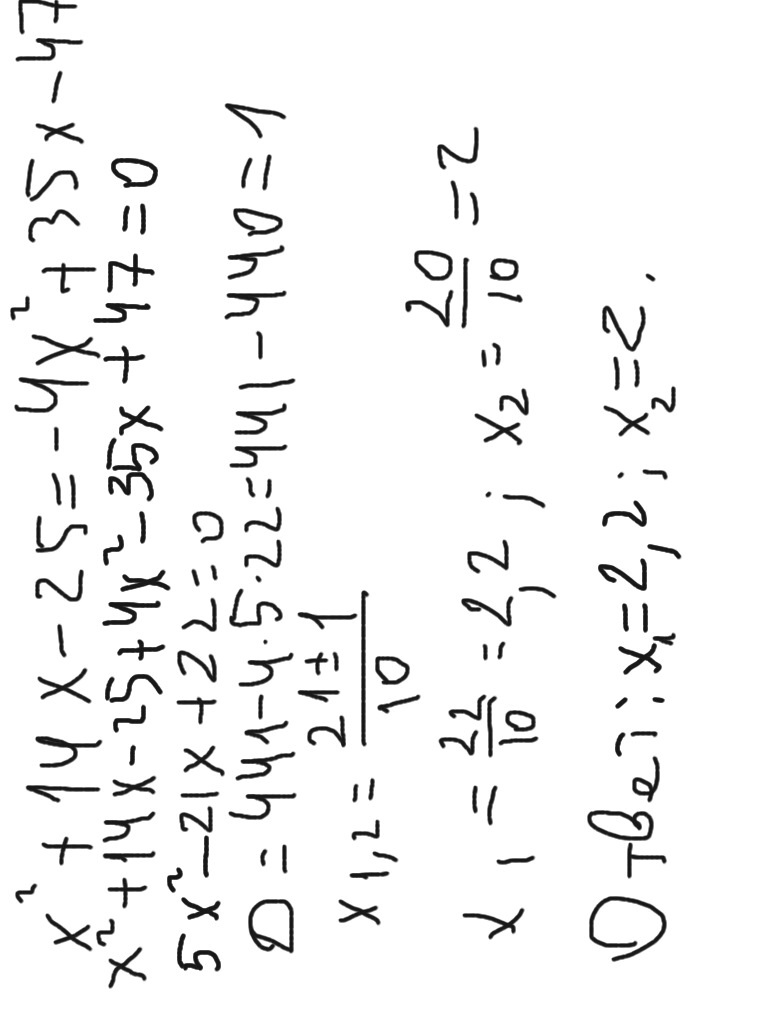 x² + 14x - 25 = -4x² + 35x - 47
x² + 14x - 25 + 4x² - 35x + 47 = 0
5x² - 21x + 22 = 0
D = 441 - 4·5·22 = 441 - 440 = 1
x1,2 = (21 ± 1)/10
x1 = 22/10 = 2,2; x2 = 20/10 = 2
Ответ: x₁ = 2,2; x₂ = 2.